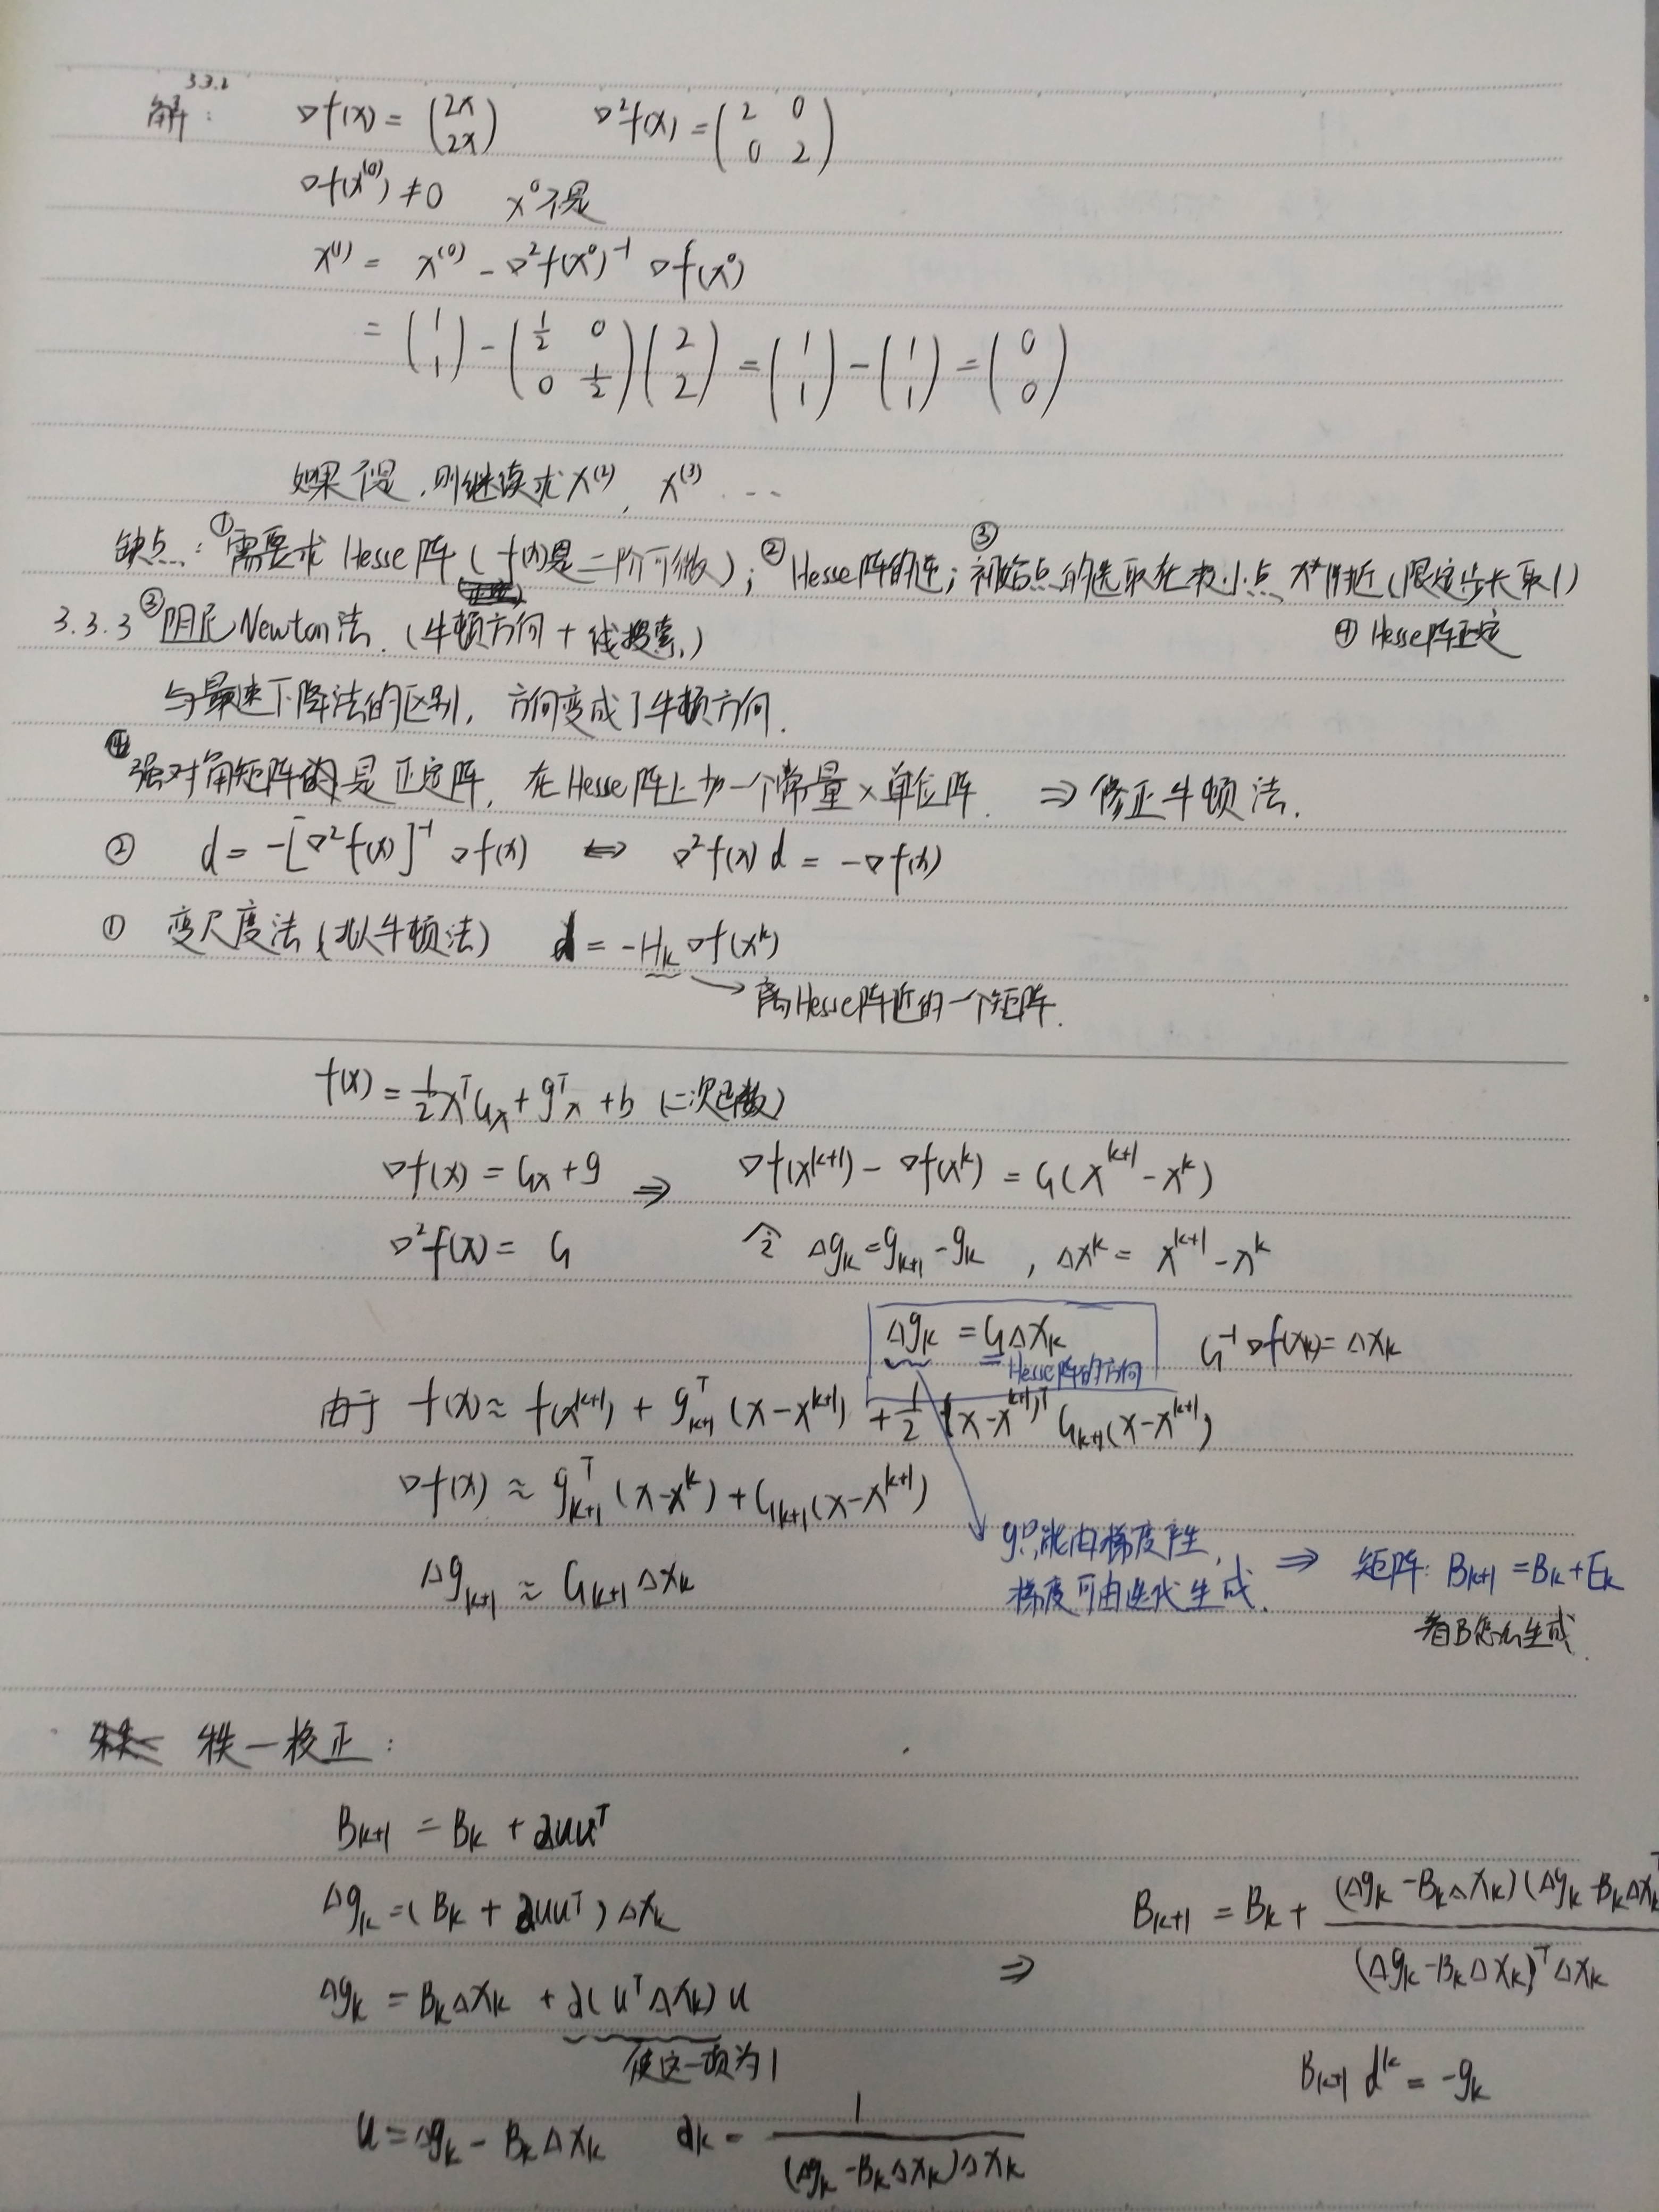 3.3.2
解: ▽f(x) = (2x 2x) ▽²f(x) = (2 0 0 2)
▽f(x⁽⁰⁾) ≠ 0 x⁰不是
x⁽¹⁾ = x⁽⁰⁾ - ▽²f(x⁰)⁻¹ ▽f(x⁰)
= (1 1) - (1/2 0 0 1/2)(2 2) = (1 1) - (1 1) = (0 0)
如果不是,则继续求x⁽²⁾, x⁽³⁾ ...
缺点: ①需要求 Hesse阵 (f(x)是二阶可微); ②Hesse阵的逆; ③初始点的选取在极小点 x*附近 (限定步长取1)
④ Hesse阵正定
3.3.3 ③阻尼Newton法. (牛顿方向 + 线搜索)
与最速下降法的区别, 方向变成了牛顿方向.
④ 强对角矩阵是正定阵, 在Hesse阵上加一个常量×单位阵. ⇒ 修正牛顿法.
② d = -[▽²f(x)]⁻¹ ▽f(x) ⇔ ▽²f(x) d = -▽f(x)
① 变尺度法 (拟牛顿法) d = -Hk ▽f(xᵏ)
→ 离Hesse阵近的一个矩阵.
f(x) = 1/2 xᵀGx + gᵀx + b (二次函数)
▽f(x) = Gx + g ⇒ ▽f(xᵏ⁺¹) - ▽f(xᵏ) = G(xᵏ⁺¹ - xᵏ)
▽²f(x) = G 令 Δgk = gk+1 - gk , Δxᵏ = xᵏ⁺¹ - xᵏ
Δgk = GΔxk G⁻¹▽f(xk) = Δxk
Hesse阵的方向
由于 f(x) ≈ f(xᵏ⁺¹) + gᵀk+1 (x - xᵏ⁺¹) + 1/2 (x - xᵏ⁺¹)ᵀ Gk+1 (x - xᵏ⁺¹)
▽f(x) ≈ gᵀk+1 (x - xᵏ) + Gk+1 (x - xᵏ⁺¹)
g只能由梯度产生,
Δgk+1 ≈ Gk+1 Δxk
梯度可由迭代生成. ⇒ 矩阵: Bk+1 = Bk + Ek
看B怎么生成.
秩一校正:
Bk+1 = Bk + αuuᵀ
Δgk = (Bk + αuuᵀ) Δxk
Δgk = BkΔxk + α(uᵀΔxk) u
使这一项为1
u = Δgk - BkΔxk αk = 1/((Δgk - BkΔxk)Δxk)
⇒ Bk+1 = Bk + (Δgk - BkΔxk)(Δgk - BkΔxk)ᵀ / (Δgk - BkΔxk)ᵀ Δxk
Bk+1 dᵏ = -gk